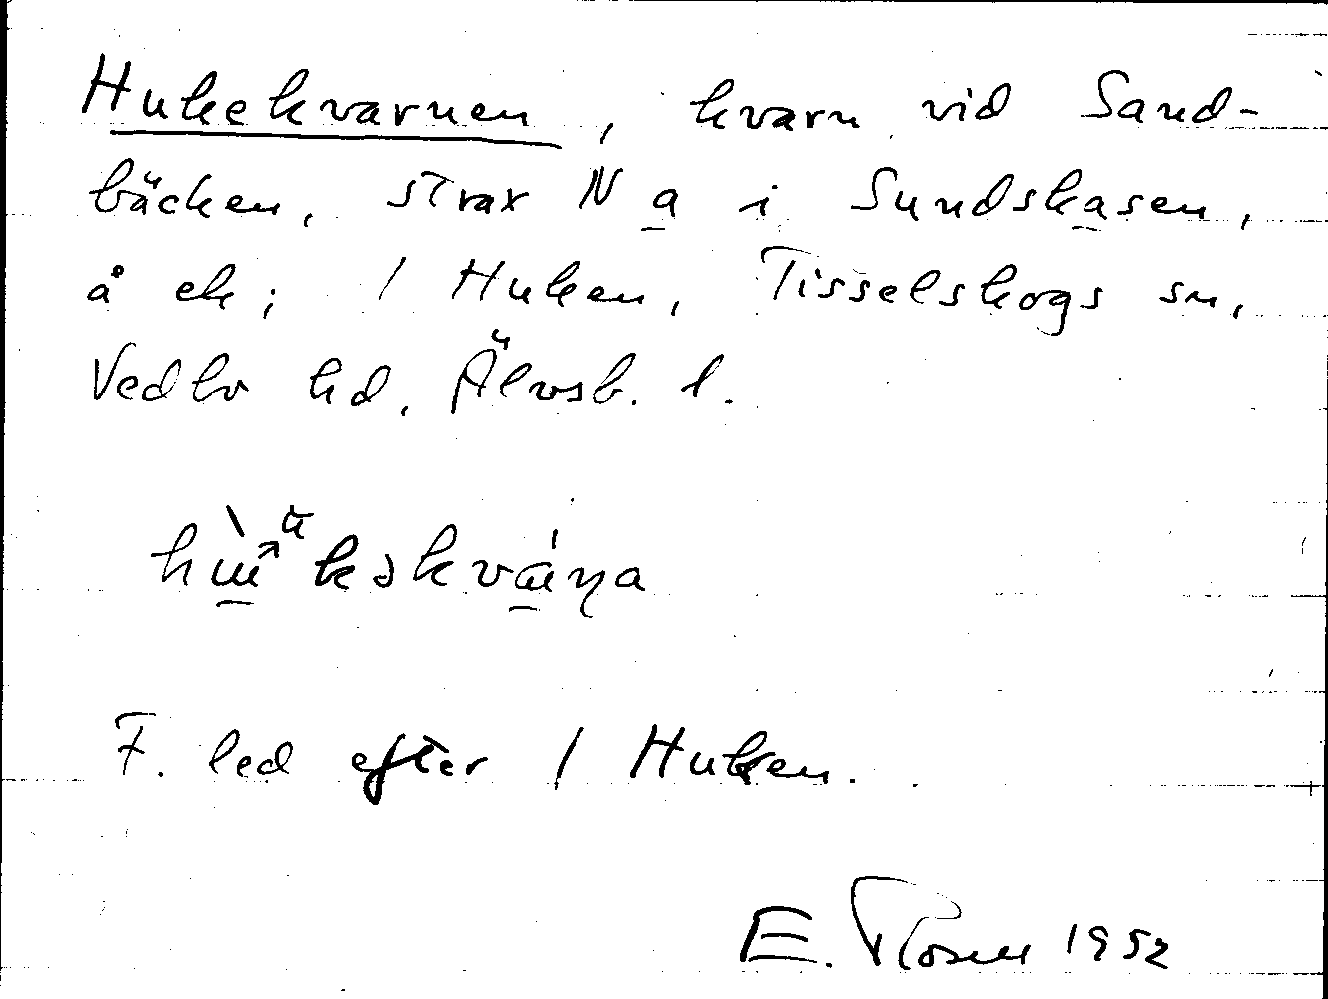 Hukekvarnen, kvarn vid Sand-
bäcken, strax N a i Sundskasen,
å ek; / Huken, Tisselskogs sn,
Vedbo hd, Älvsb. l.
F. led efter / Huken.
E. Rosell 1952